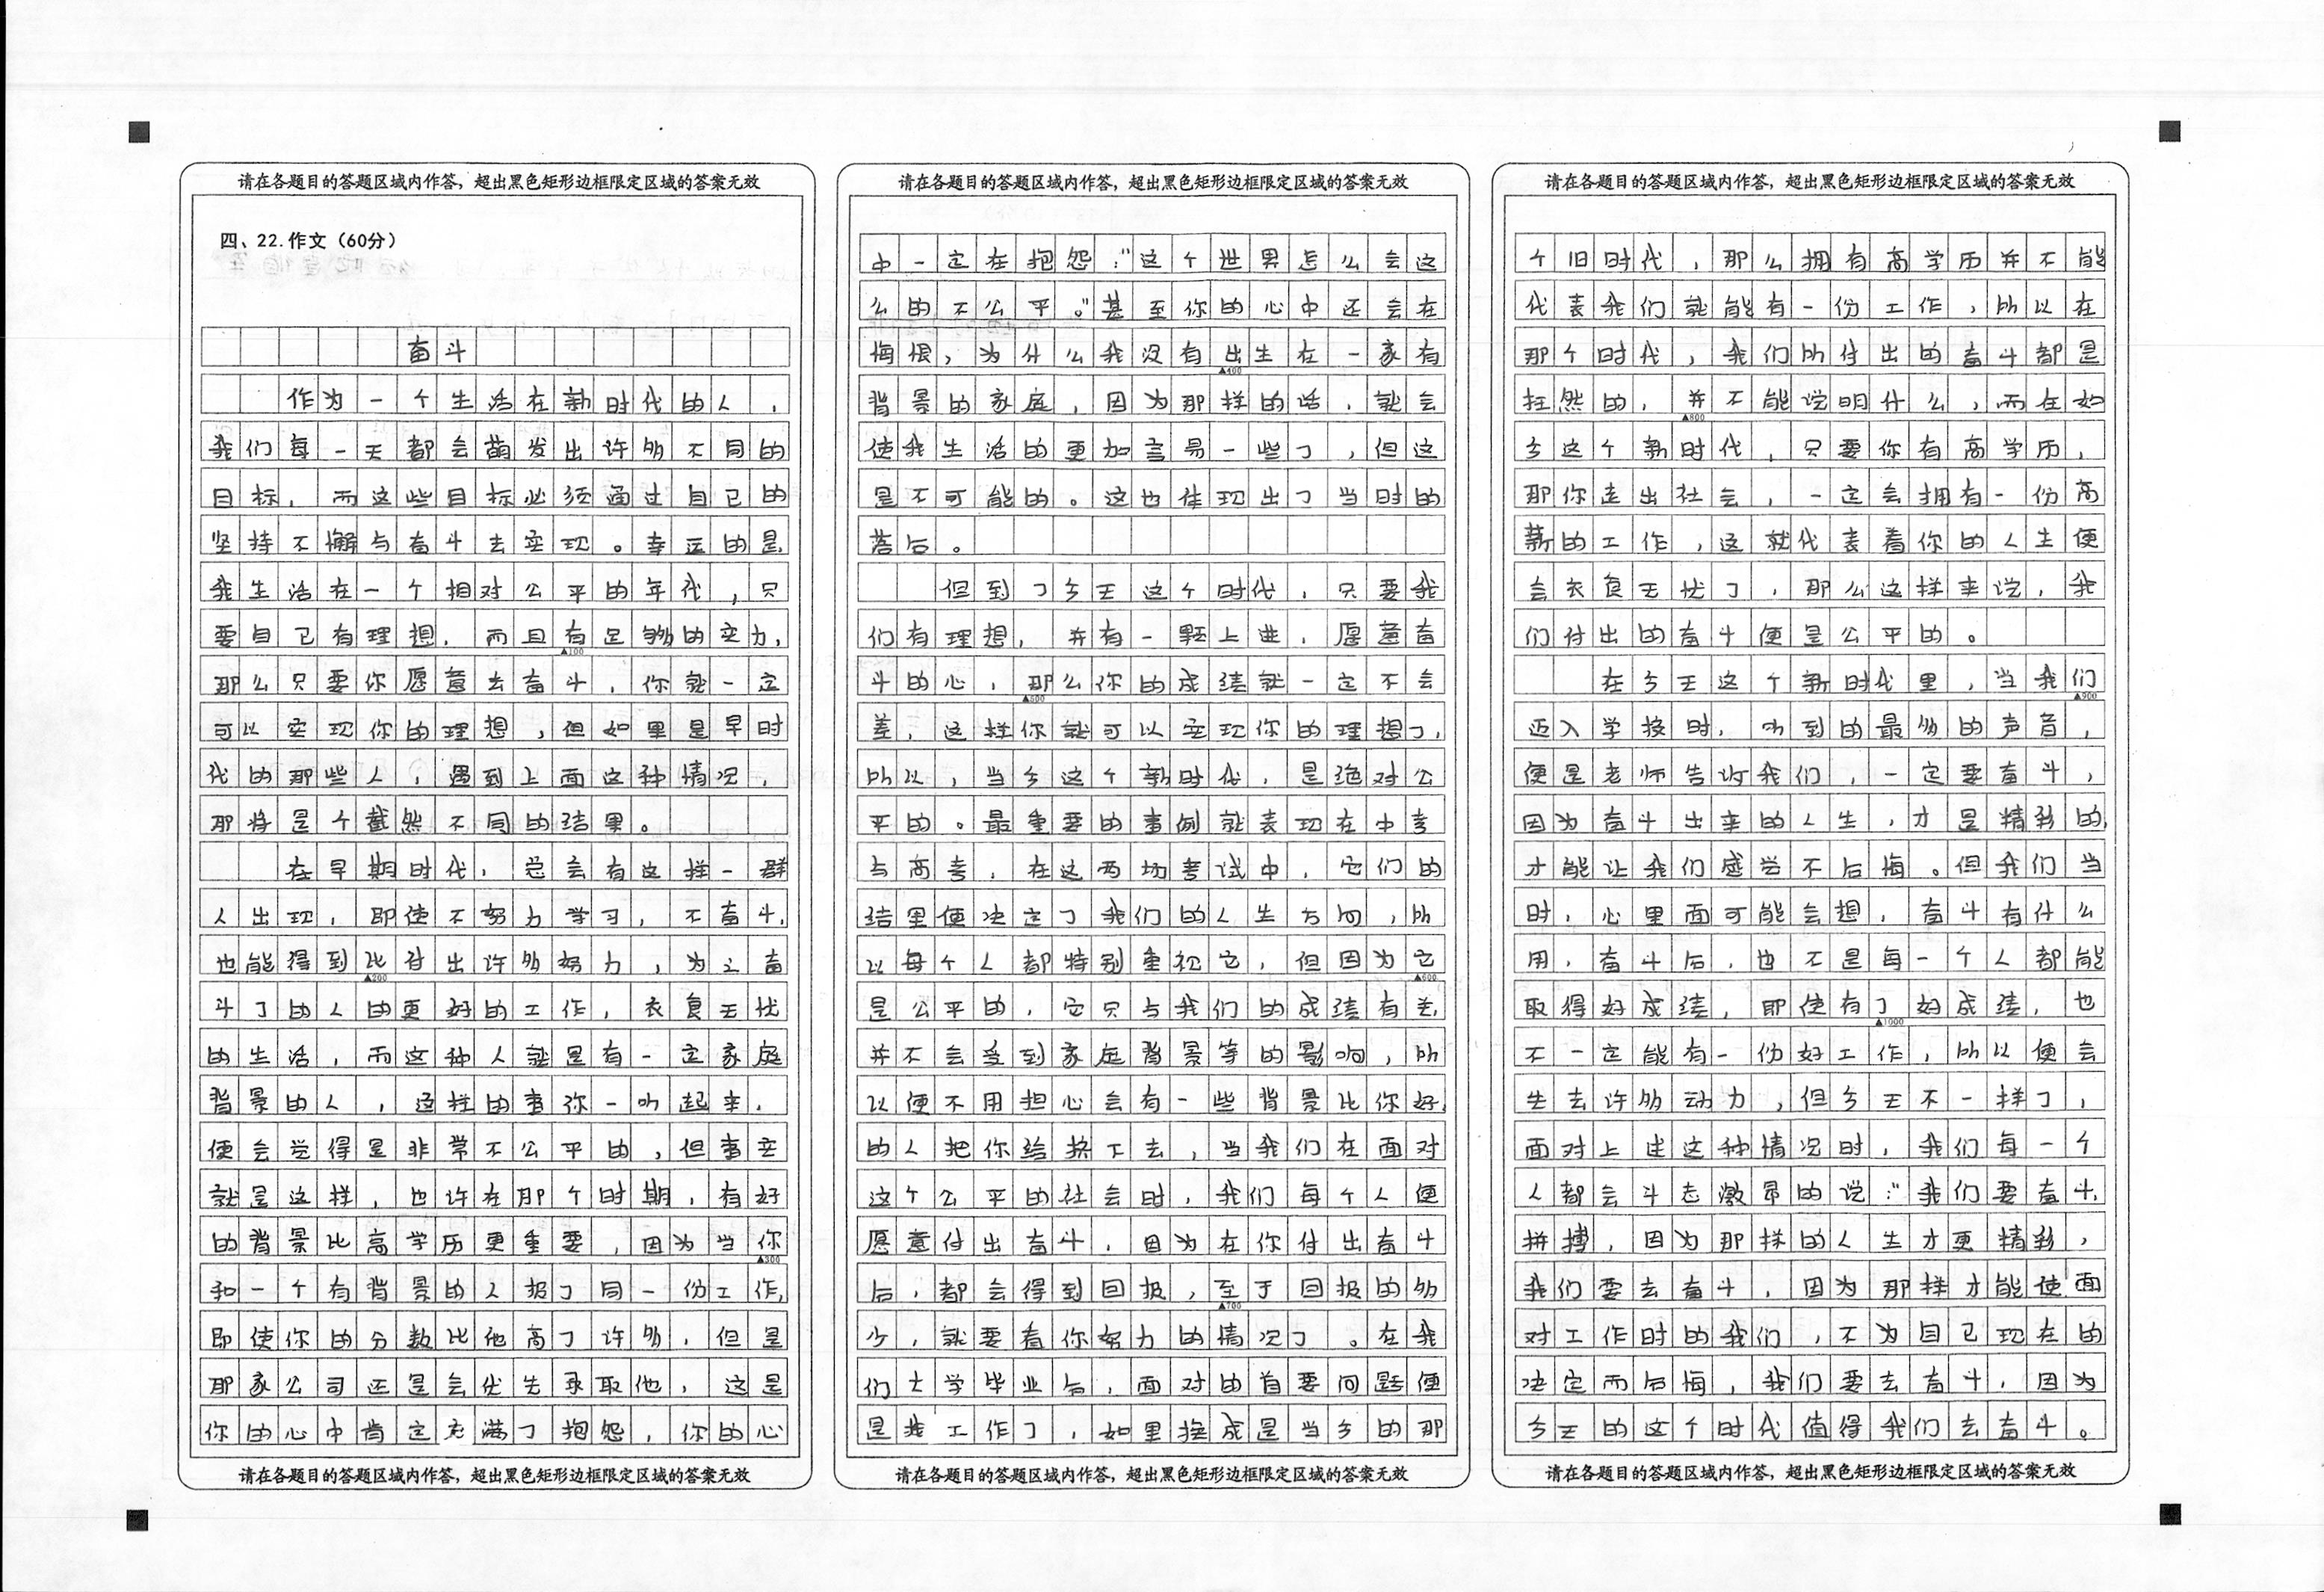 请在各题目的答题区域内作答，超出黑色矩形边框限定区域的答案无效
四、22.作文（60分）
奋斗
作为一个生活在新时代的人，
我们每一天都会萌发出许多不同的
目标，而这些目标必须通过自己的
坚持不懈与奋斗去实现。幸运的是
我生活在一个相对公平的年代，只
要自己有理想，而且有足够的实力，
▲100
那么只要你愿意去奋斗，你就一定
可以实现你的理想，但如果是早时
代的那些人，遇到上面这种情况，
那将是个截然不同的结果。
在早期时代，总会有这样一群
人出现，即使不努力学习，不奋斗，
也能得到比付出许多努力，为之奋
▲200
斗了的人的更好的工作，衣食无忧
的生活，而这种人就是有一定家庭
背景的人，这样的事你一听起来，
便会觉得是非常不公平的，但事实
就是这样，也许在那个时期，有好
的背景比高学历更重要，因为当你
▲300
和一个有背景的人报了同一份工作，
即使你的分数比他高了许多，但是
那家公司还是会优先录取他，这是
你的心中肯定充满了抱怨，你的心
请在各题目的答题区域内作答，超出黑色矩形边框限定区域的答案无效
请在各题目的答题区域内作答，超出黑色矩形边框限定区域的答案无效
中一定在抱怨："这个世界怎么会这
么的不公平。"甚至你的心中还会在
悔恨，为什么我没有出生在一家有
▲400
背景的家庭，因为那样的话，就会
使我生活的更加容易一些了，但这
是不可能的。这也体现出了当时的
落后。
但到了今天这个时代，只要我
们有理想，并有一颗上进，愿意奋
斗的心，那么你的成绩就一定不会
▲500
差，这样你就可以实现你的理想了，
所以，当今这个新时代，是绝对公
平的。最重要的事例就表现在中考
与高考，在这两场考试中，它们的
结果便决定了我们的人生方向，所
以每个人都特别重视它，但因为它
▲600
是公平的，它只与我们的成绩有关，
并不会受到家庭背景等的影响，所
以便不用担心会有一些背景比你好
的人把你给挤下去，当我们在面对
这个公平的社会时，我们每个人便
愿意付出奋斗，因为在你付出奋斗
后，都会得到回报，至于回报的多
▲700
少，就要看你努力的情况了。在我
们大学毕业后，面对的首要问题便
是找工作了，如果换成是当今的那
请在各题目的答题区域内作答，超出黑色矩形边框限定区域的答案无效
请在各题目的答题区域内作答，超出黑色矩形边框限定区域的答案无效
个旧时代，那么拥有高学历并不能
代表我们就能有一份工作，所以在
那个时代，我们所付出的奋斗都是
枉然的，并不能说明什么，而在如
▲800
今这个新时代，只要你有高学历，
那你走出社会，一定会拥有一份高
薪的工作，这就代表着你的人生便
会衣食无忧了，那么这样来说，我
们付出的奋斗便是公平的。
在今天这个新时代里，当我们
▲900
迈入学校时，听到的最多的声音，
便是老师告诉我们，一定要奋斗，
因为奋斗出来的人生，才是精彩的，
才能让我们感觉不后悔。但我们当
时，心里面可能会想，奋斗有什么
用，奋斗后，也不是每一个人都能
取得好成绩，即使有了好成绩，也
▲1000
不一定能有一份好工作，所以便会
失去许多动力，但今天不一样了，
面对上述这种情况时，我们每一个
人都会斗志激昂的说："我们要奋斗，
拼搏，因为那样的人生才更精彩，
我们要去奋斗，因为那样才能使面
对工作时的我们，不为自己现在的
决定而后悔，我们要去奋斗，因为
今天的这个时代值得我们去奋斗。
请在各题目的答题区域内作答，超出黑色矩形边框限定区域的答案无效